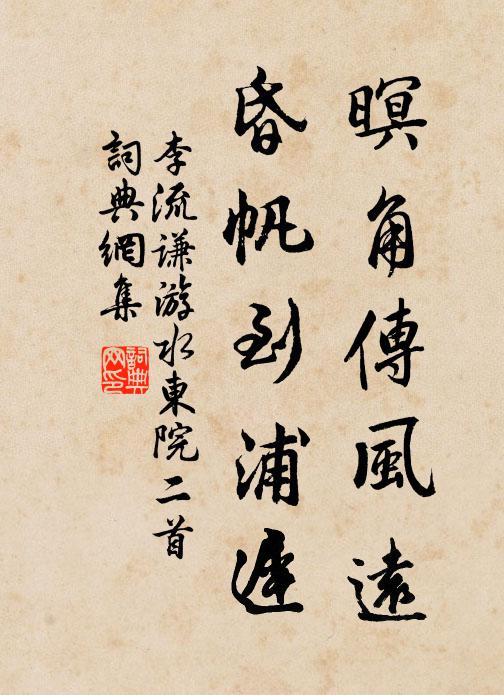 暝角傳風遠
昏帆到浦遲
李流謙游水東院二首
詞典網集
詞典網印